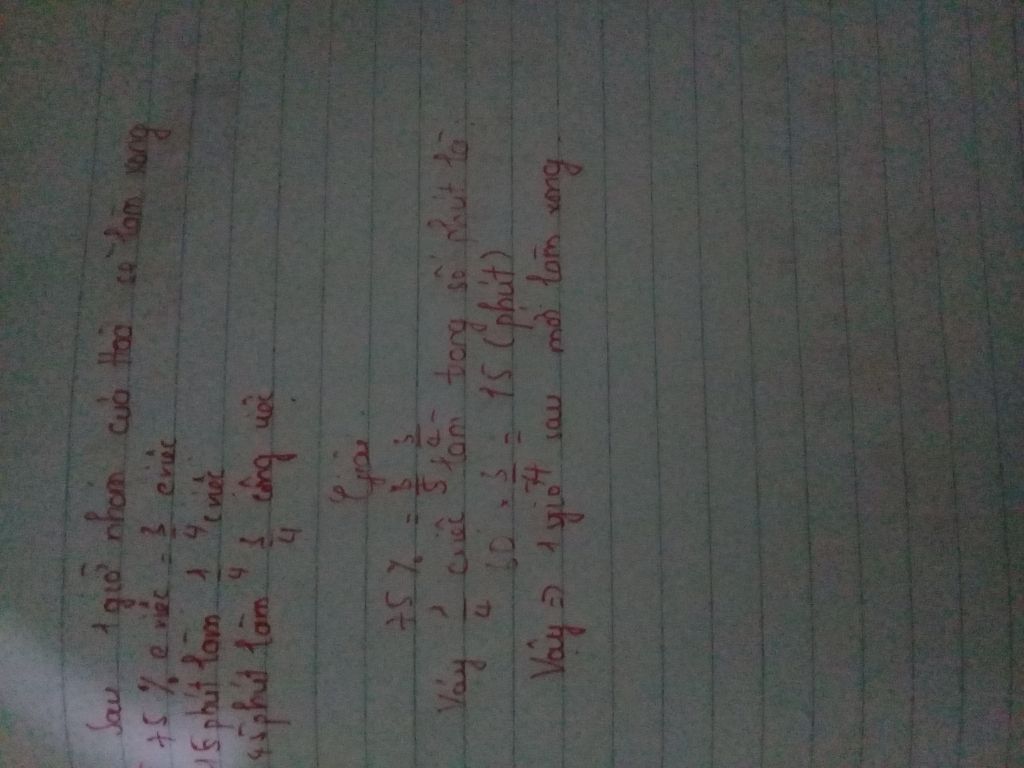 Sau 1 giờ nhóm của Hoà có làm xong
75 % c việc = 3/4 c việc
15 phút làm 1/4 c việc
45 phút làm 3/4 công việc
Giải
75 % = 3/5 3/4
Vậy 1/4 c việc làm trong số phút là
30 × 3/4 = 15 (phút)
Vậy => 1 giờ sau mới làm xong